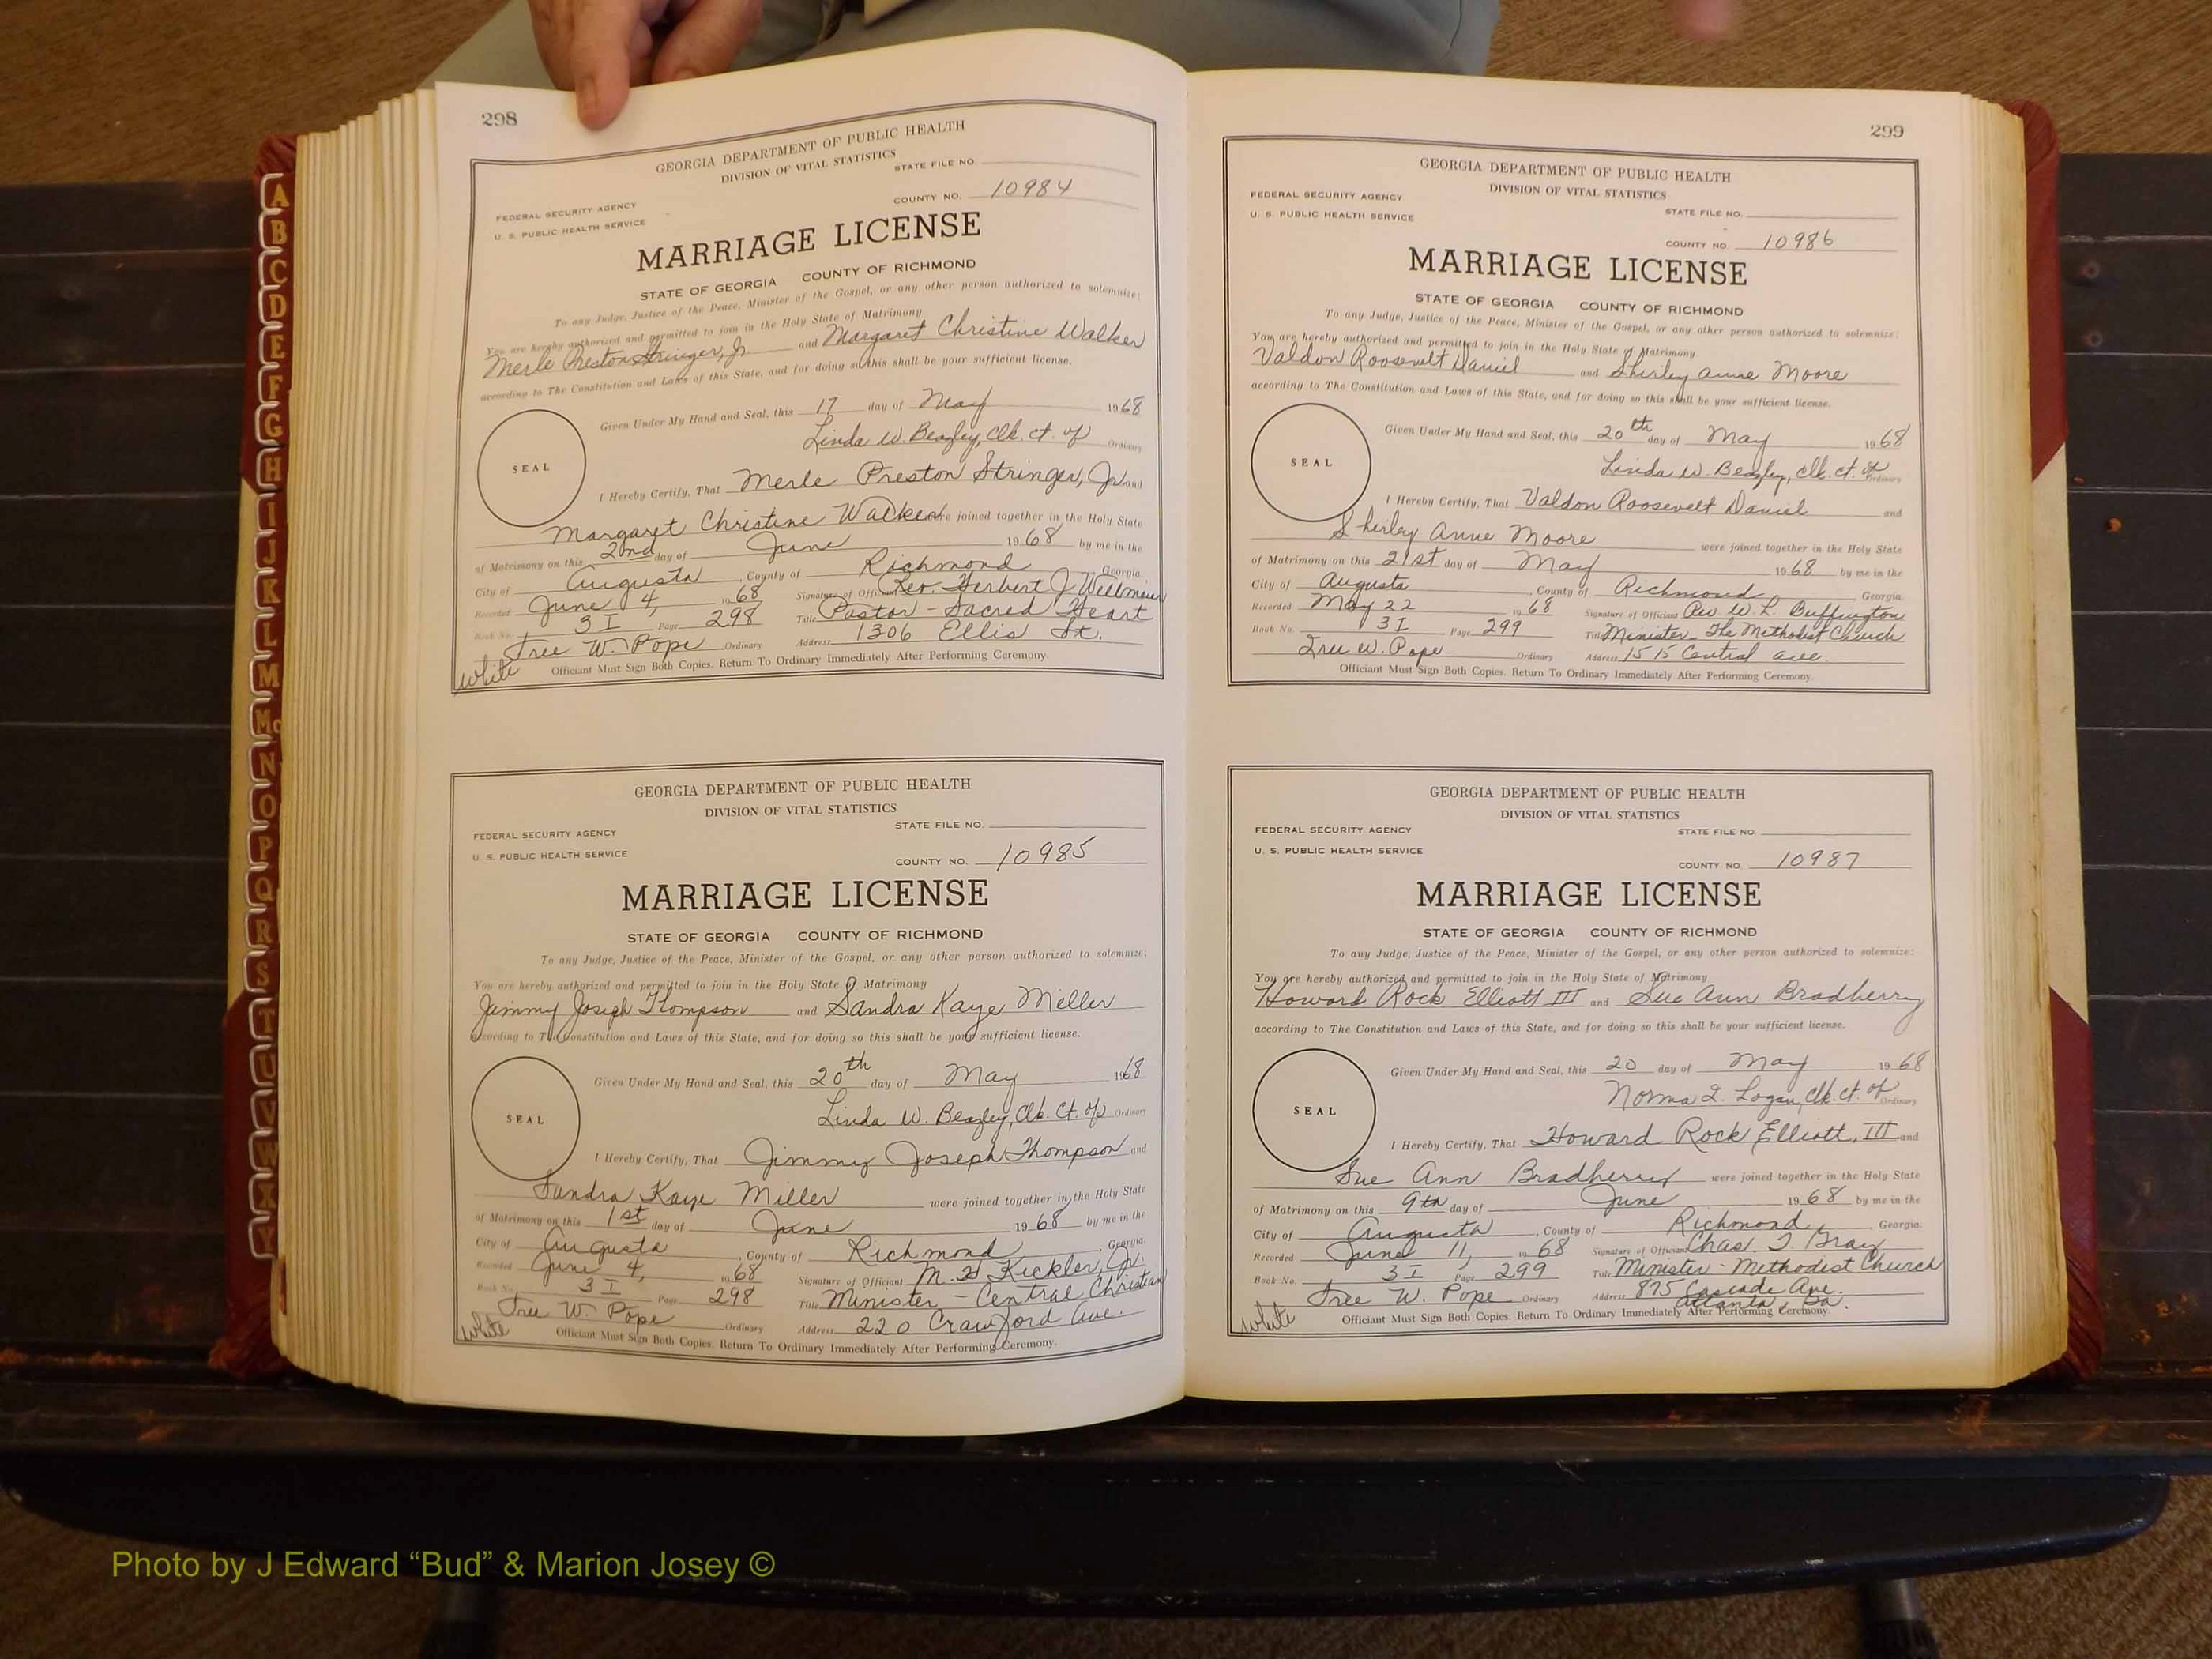 298
GEORGIA DEPARTMENT OF PUBLIC HEALTH
DIVISION OF VITAL STATISTICS
STATE FILE NO.
FEDERAL SECURITY AGENCY
COUNTY NO. 10984
U. S. PUBLIC HEALTH SERVICE
MARRIAGE LICENSE
STATE OF GEORGIA COUNTY OF RICHMOND
To any Judge, Justice of the Peace, Minister of the Gospel, or any other person authorized to solemnize:
You are hereby authorized and permitted to join in the Holy State of Matrimony
Merle Preston Stringer, Jr and Margaret Christine Walker
according to The Constitution and Laws of this State, and for doing so this shall be your sufficient license.
Given Under My Hand and Seal, this 17 day of May 1968
Linda W. Beazley, Clk. Ct. of Ordinary
SEAL
I Hereby Certify, That Merle Preston Stringer, Jr and
Margaret Christine Walker were joined together in the Holy State
of Matrimony on this 2nd day of June 1968 by me in the
City of Augusta, County of Richmond, Georgia.
Recorded June 4, 1968 Signature of Officiant Rev. Herbert J.
Book No. 3 I Page 298 Title Pastor - Sacred Heart
Tree W. Pope Ordinary Address 1306 Ellis St.
White Officiant Must Sign Both Copies. Return To Ordinary Immediately After Performing Ceremony.
GEORGIA DEPARTMENT OF PUBLIC HEALTH
DIVISION OF VITAL STATISTICS
STATE FILE NO.
FEDERAL SECURITY AGENCY
U. S. PUBLIC HEALTH SERVICE
COUNTY NO. 10985
MARRIAGE LICENSE
STATE OF GEORGIA COUNTY OF RICHMOND
To any Judge, Justice of the Peace, Minister of the Gospel, or any other person authorized to solemnize:
You are hereby authorized and permitted to join in the Holy State of Matrimony
Jimmy Joseph Thompson and Sandra Kaye Miller
according to The Constitution and Laws of this State, and for doing so this shall be your sufficient license.
Given Under My Hand and Seal, this 20th day of May 1968
Linda W. Beazley, Clk. Ct. of Ordinary
SEAL
I Hereby Certify, That Jimmy Joseph Thompson and
Sandra Kaye Miller were joined together in the Holy State
of Matrimony on this 1st day of June 1968 by me in the
City of Augusta, County of Richmond, Georgia.
Recorded June 4, 1968 Signature of Officiant M. H. Kickler, Jr.
Book No. 3 I Page 298 Title Minister - Central Christian
Tree W. Pope Ordinary Address 220 Crawford Ave.
White Officiant Must Sign Both Copies. Return To Ordinary Immediately After Performing Ceremony.
299
GEORGIA DEPARTMENT OF PUBLIC HEALTH
DIVISION OF VITAL STATISTICS
FEDERAL SECURITY AGENCY
U. S. PUBLIC HEALTH SERVICE
STATE FILE NO.
COUNTY NO. 10986
MARRIAGE LICENSE
STATE OF GEORGIA COUNTY OF RICHMOND
To any Judge, Justice of the Peace, Minister of the Gospel, or any other person authorized to solemnize:
You are hereby authorized and permitted to join in the Holy State of Matrimony
Valdon Roosevelt Daniel and Shirley Anne Moore
according to The Constitution and Laws of this State, and for doing so this shall be your sufficient license.
Given Under My Hand and Seal, this 20th day of May 1968
Linda W. Beazley, Clk. Ct. of Ordinary
SEAL
I Hereby Certify, That Valdon Roosevelt Daniel and
Shirley Anne Moore were joined together in the Holy State
of Matrimony on this 21st day of May 1968 by me in the
City of Augusta, County of Richmond, Georgia.
Recorded May 22 1968 Signature of Officiant Rev W. L. Buffington
Book No. 3 I Page 299 Title Minister - The Methodist Church
Tree W. Pope Ordinary Address 1515 Central Ave.
Officiant Must Sign Both Copies. Return To Ordinary Immediately After Performing Ceremony.
GEORGIA DEPARTMENT OF PUBLIC HEALTH
DIVISION OF VITAL STATISTICS
FEDERAL SECURITY AGENCY
STATE FILE NO.
U. S. PUBLIC HEALTH SERVICE
COUNTY NO. 10987
MARRIAGE LICENSE
STATE OF GEORGIA COUNTY OF RICHMOND
To any Judge, Justice of the Peace, Minister of the Gospel, or any other person authorized to solemnize:
You are hereby authorized and permitted to join in the Holy State of Matrimony
Howard Rock Elliott III and Sue Ann Bradberry
according to The Constitution and Laws of this State, and for doing so this shall be your sufficient license.
Given Under My Hand and Seal, this 20 day of May 1968
Norma I. Logan, Clk. Ct. of Ordinary
SEAL
I Hereby Certify, That Howard Rock Elliott, III and
Sue Ann Bradberry were joined together in the Holy State
of Matrimony on this 9th day of June 1968 by me in the
City of Augusta, County of Richmond, Georgia.
Recorded June 11, 1968 Signature of Officiant Chas. T. Bray
Book No. 3 I Page 299 Title Minister - Methodist Church
Tree W. Pope Ordinary Address 875 Cascade Ave.
Atlanta, Ga.
White Officiant Must Sign Both Copies. Return To Ordinary Immediately After Performing Ceremony.
A
B
C
D
E
F
G
H
I
J
K
L
M
Mc
N
O
P
Q
R
S
T
U
V
W
X
Y
Photo by J Edward “Bud” & Marion Josey ©